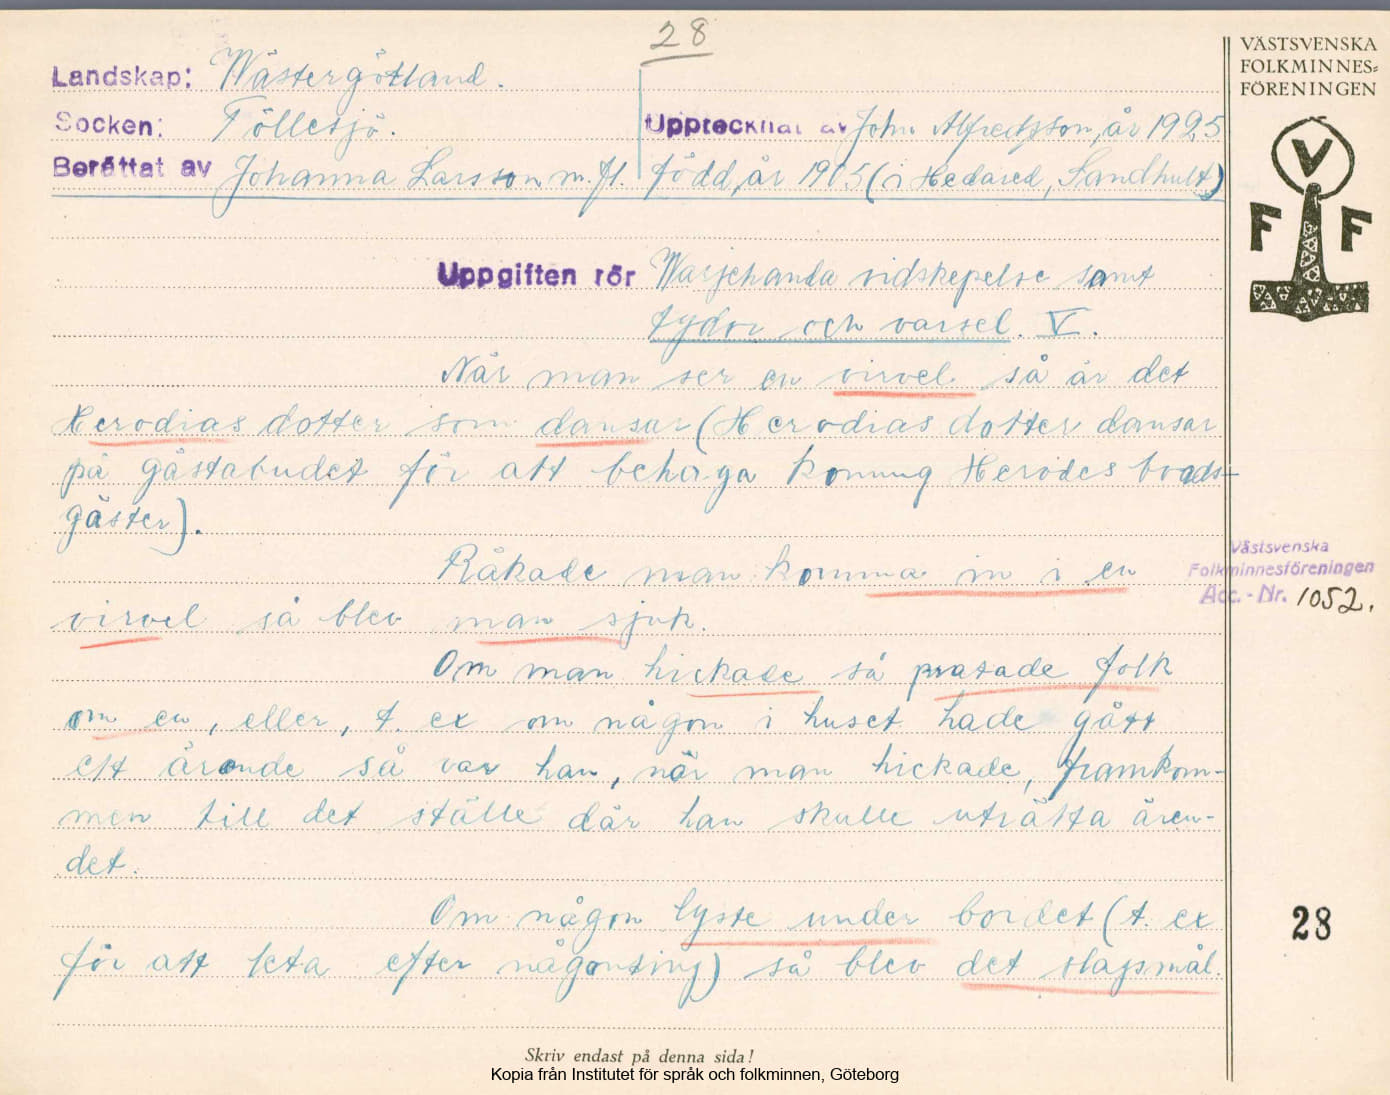 28
VÄSTSVENSKA
FOLKMINNES-
FÖRENINGEN
V
F F
Landskap: Wästergötland.
Socken: Töllesjö.
Upptecknat av John Alfredsson, år 1925
Berättat av Johanna Larsson m. fl. född, år 1905 (i Hedared, Sandhult)
Uppgiften rör Warjehanda vidskepelse samt
tydor och varsel. V.
När man ser en virvel så är det
Herodias dotter som dansar (Herodias dotter dansar
på gästabudet för att behaga konung Herodes bords-
gäster).
Råkade man komma in i en
virvel så blev man sjuk.
Om man hickade så pratade folk
om en, eller, t. ex om någon i huset hade gått
ett ärende så var han, när man hickade, framkom-
men till det ställe där han skulle uträtta ären-
det.
Om någon lyste under bordet (t. ex
för att leta efter någonting) så blev det slagsmål.
Västsvenska
Folkminnesföreningen
Acc.-Nr. 1052.
28
Skriv endast på denna sida!
Kopia från Institutet för språk och folkminnen, Göteborg